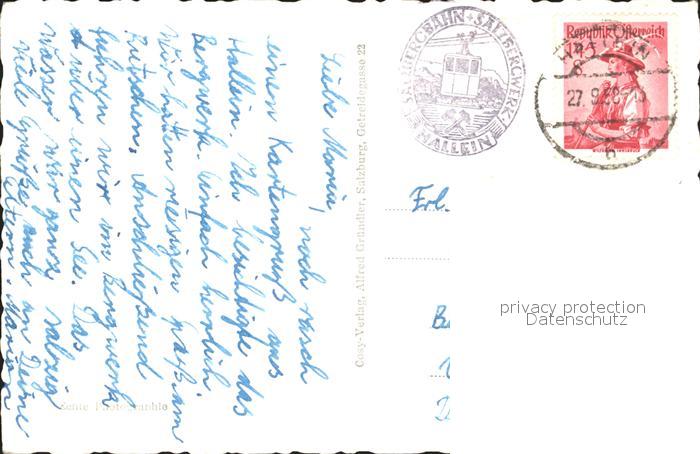 Liebe Marein, noch rasch
einen Kartengruß aus
Hallein. Ich besichtigte das
Bergwerk. Einfach herrlich
Wir hatten riesigen Spaß am
Rutschen. Anschließend
fuhren wir im Bergwerk
über einen See. Das
Wasser war ganz salzig
Viele Grüße auch an Deine
Eltern.
Echte Photographie
Cosy-Verlag, Alfred Gründler, Salzburg, Getreidegasse 22
SALZBERGBAHN + SALZBERGWERK
HALLEIN
Republik Österreich
27.9.58
Frl.
privacy protection
Datenschutz